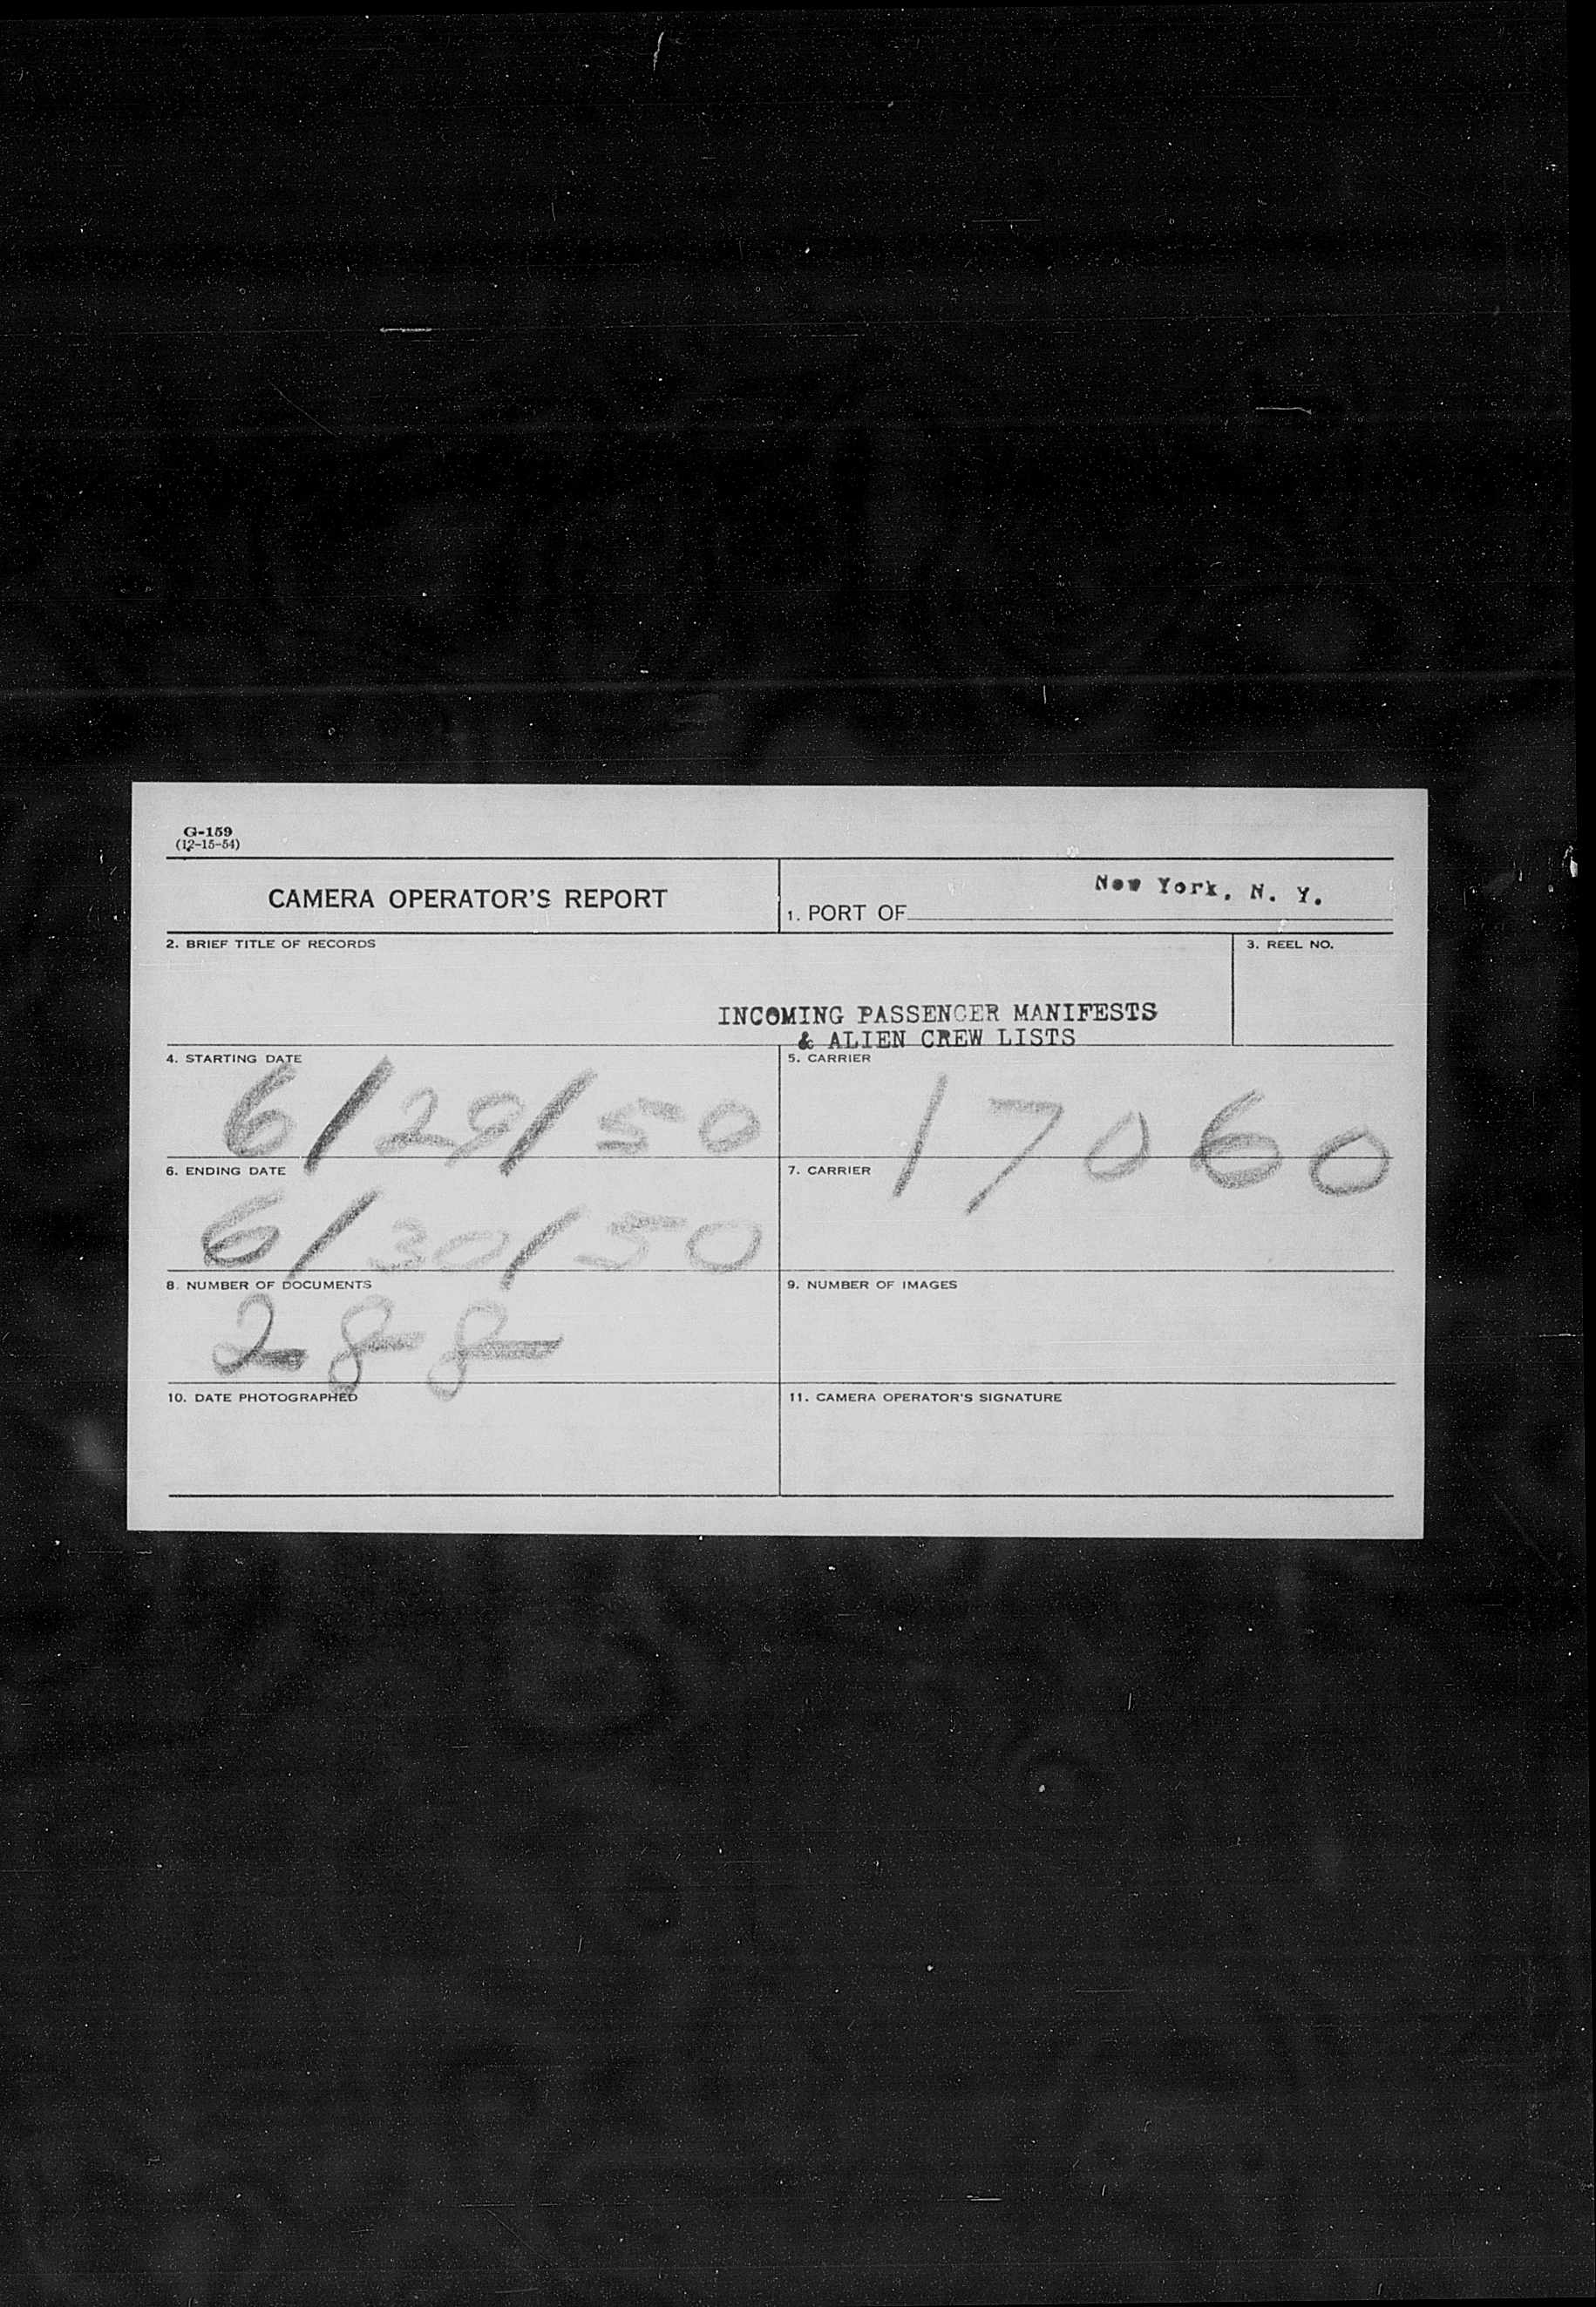 G-159
(12-15-54)
CAMERA OPERATOR'S REPORT
1. PORT OF New York, N. Y.
2. BRIEF TITLE OF RECORDS
3. REEL NO.
INCOMING PASSENGER MANIFESTS
& ALIEN CREW LISTS
4. STARTING DATE
6/29/50
5. CARRIER
17060
6. ENDING DATE
6/30/50
7. CARRIER
8. NUMBER OF DOCUMENTS
288
9. NUMBER OF IMAGES
10. DATE PHOTOGRAPHED
11. CAMERA OPERATOR'S SIGNATURE